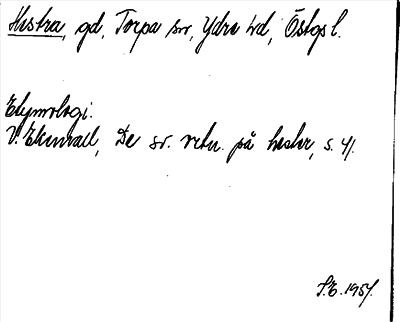 Hestra, gd, Torpa sn, Ydre hd, Östgs l.
Etymologi.
V. Ekenvall, De sv. retn. på hester, s. 41.
S.E. 1957.